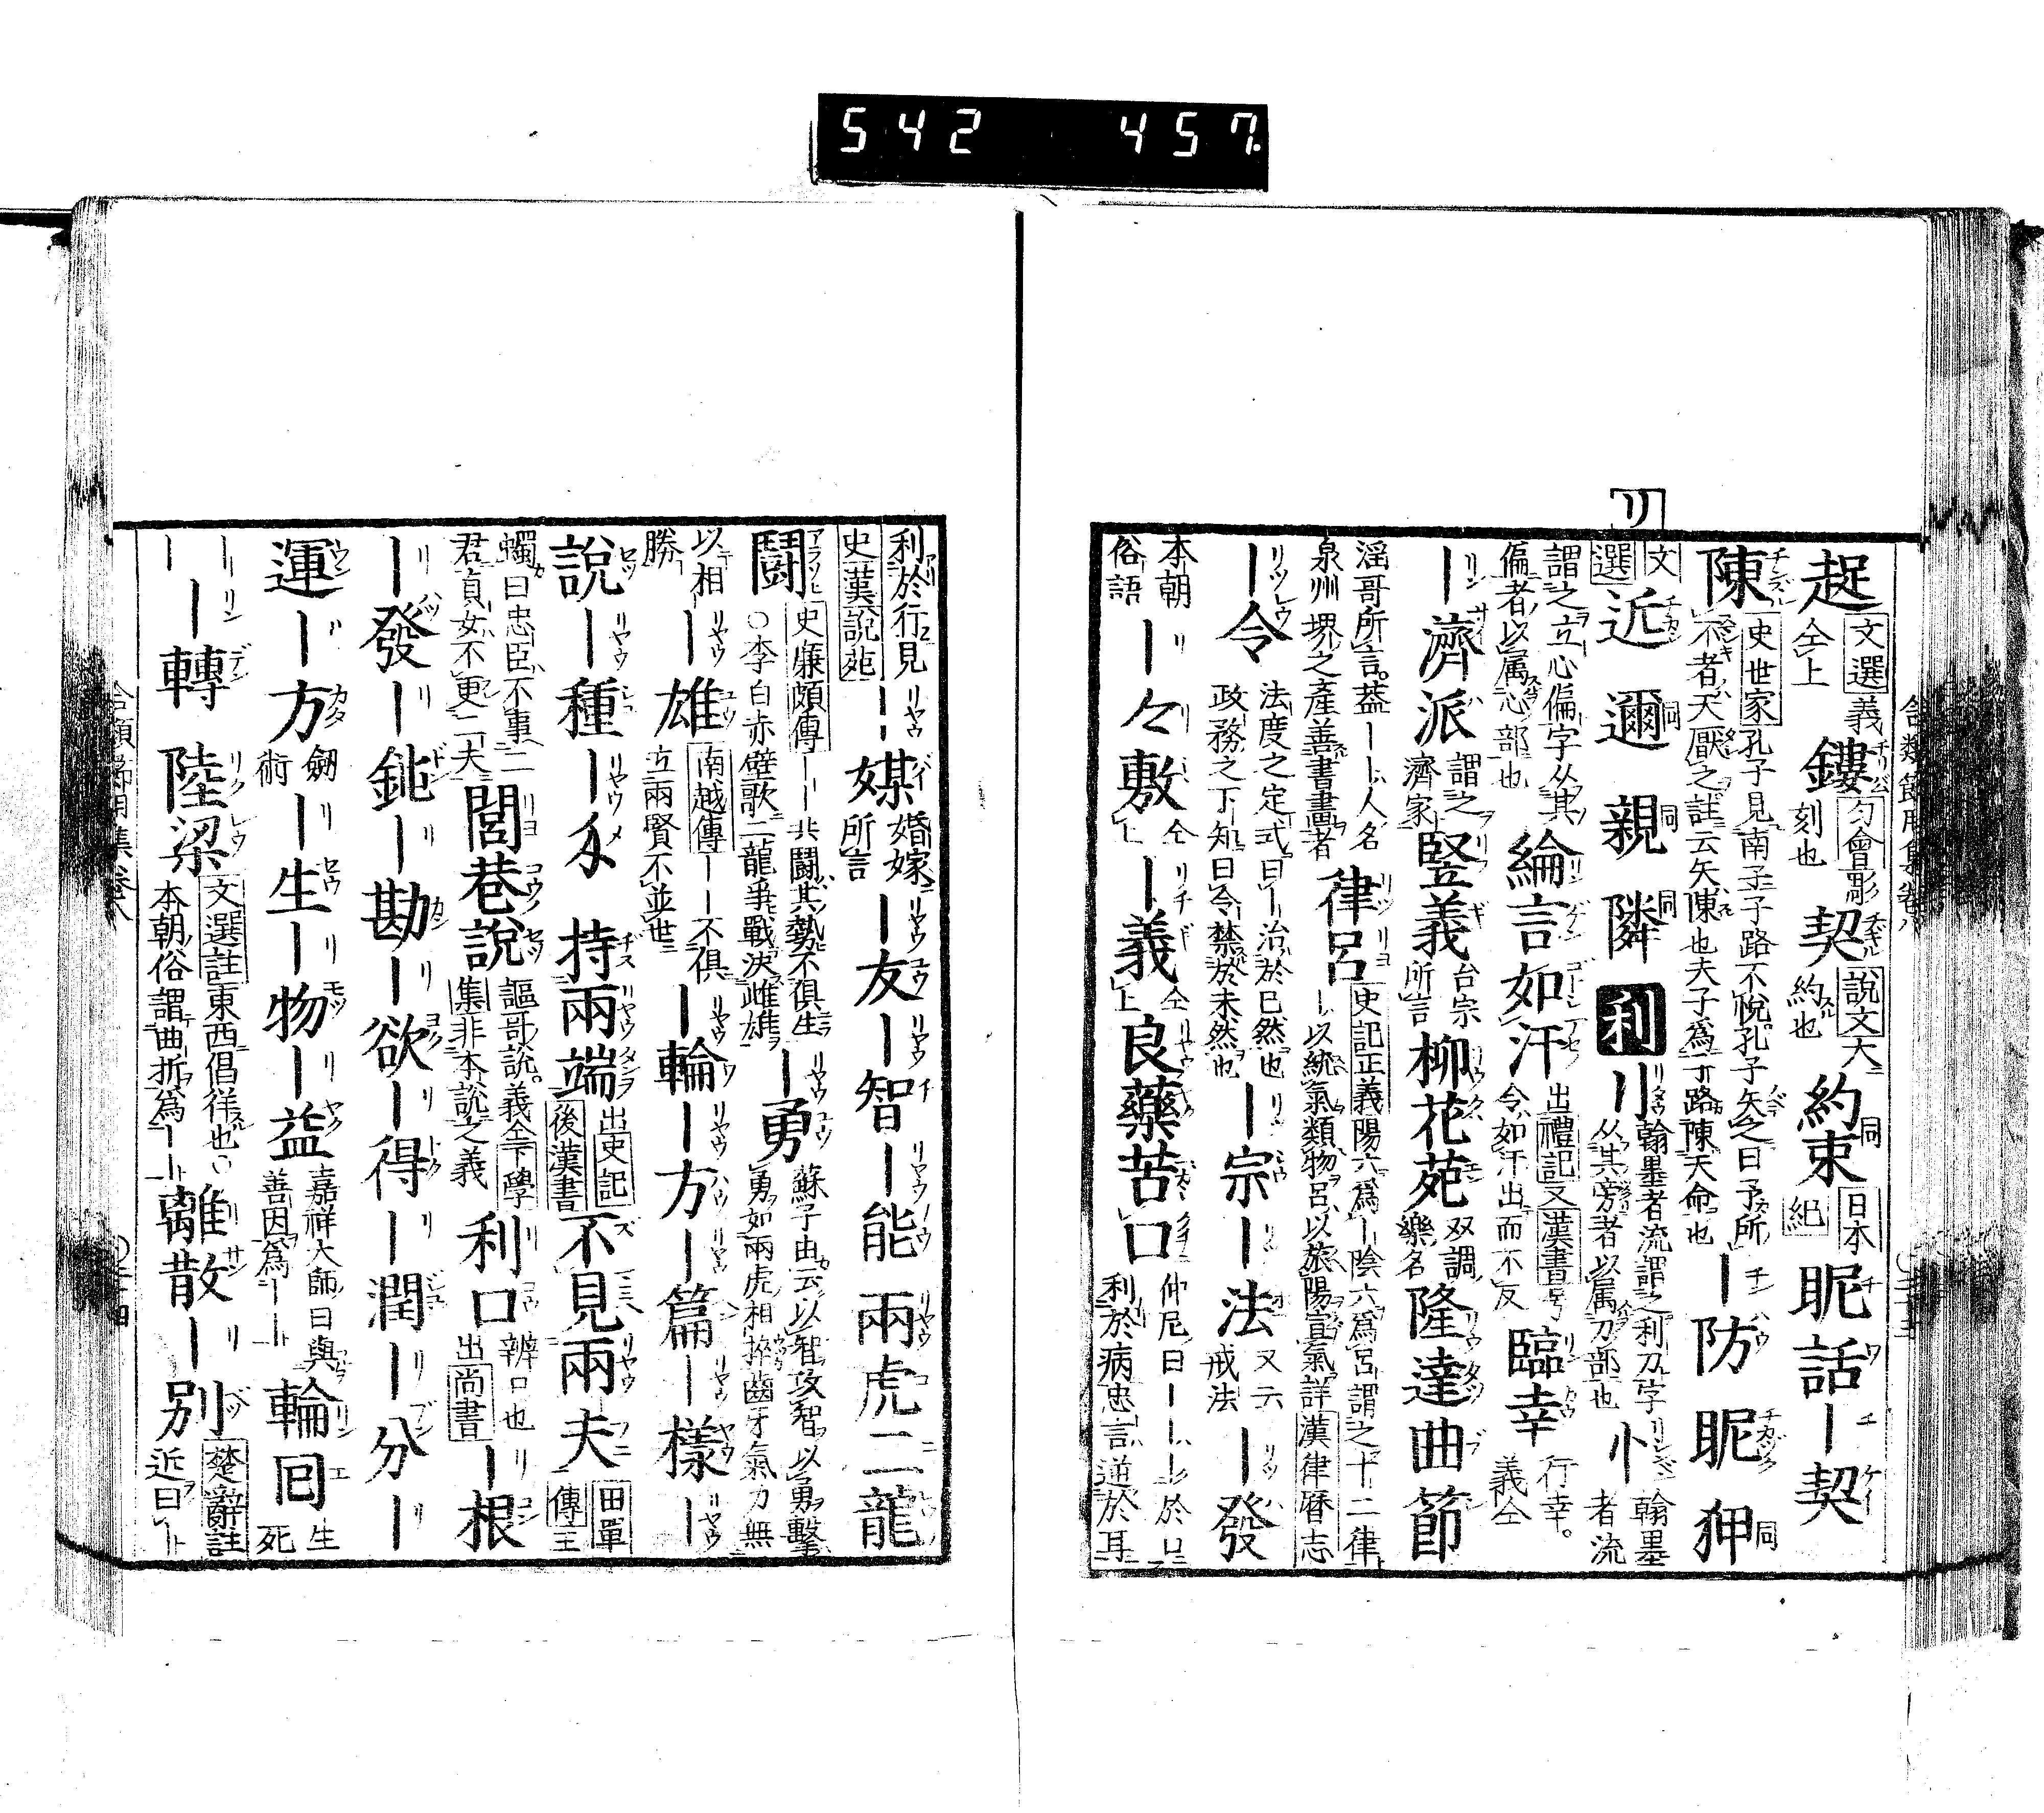 542 457
合類節用集卷八
趗 文選義仝上 鏤 匀會彫刻也 契 說文大約也 約束 同 日本紀 昵話 ｜契
陳 史世家孔子見南子子路不悅孔子矢之曰予所不者天厭之註云矢陳也夫子爲子路陳天命也 ｜防 昵 狎 同
文選 近 邇 同 親 同 隣 同 利 刂 翰墨者流謂之利刀字从其旁者以属刀部也 忄 翰墨者流
謂之立心偏字从其偏者以属心部也 綸言如汗 出禮記又漢書号令如汗出而不反 臨幸 行幸。義仝
｜濟派 謂之濟家 竪義 台宗所言 柳花苑 双調樂名 隆達曲節
滛哥所言。葢｜｜人名泉州堺之產善書畫者 律呂 史記正義陽六爲｜陰六爲呂謂之十二律｜以統氣類物呂以旅陽宣氣詳漢律曆志
｜令 法度之定式曰｜治於已然也政務之下知曰令禁於未然也 ｜宗 ｜法 又云戒法 ｜發
本朝俗語 ｜々敷 仝上 ｜義 仝上 良藥苦口 仲尼曰｜｜｜於口利於病忠言逆於耳
利於行見史漢說苑 ｜｜媒 婚嫁所言 ｜友 ｜智 ｜能 兩虎二龍
鬪 史廉頗傳｜｜共鬪其勢不俱生○李白赤壁歌二龍爭戰決雌雄 ｜勇 蘇子由云以智攻智以勇擊勇如兩虎相捽齒牙氣力無
以相勝 ｜雄 南越傳｜｜不俱立兩賢不並世 ｜輪 ｜方 ｜篇 ｜樣 ｜
說 ｜種 ｜ 持兩端 出史記後漢書 不見兩夫 田單傳王
蠋曰忠臣不事二君貞女不更二夫 閭巷說 謳哥說。義仝下學集非本說之義 利口 辨口也出尚書 ｜根
｜發 ｜鈍 ｜勘 ｜欲 ｜得 ｜潤 ｜分 ｜
運 ｜方 劒術 ｜生 ｜物 ｜益 嘉祥大師曰與善因爲｜｜ 輪囘 生死
｜｜ ｜轉 陸梁 文選註東西倡徉也○本朝俗謂曲折爲｜｜ 離散 ｜別 楚辭註近曰｜
合類節用集卷八